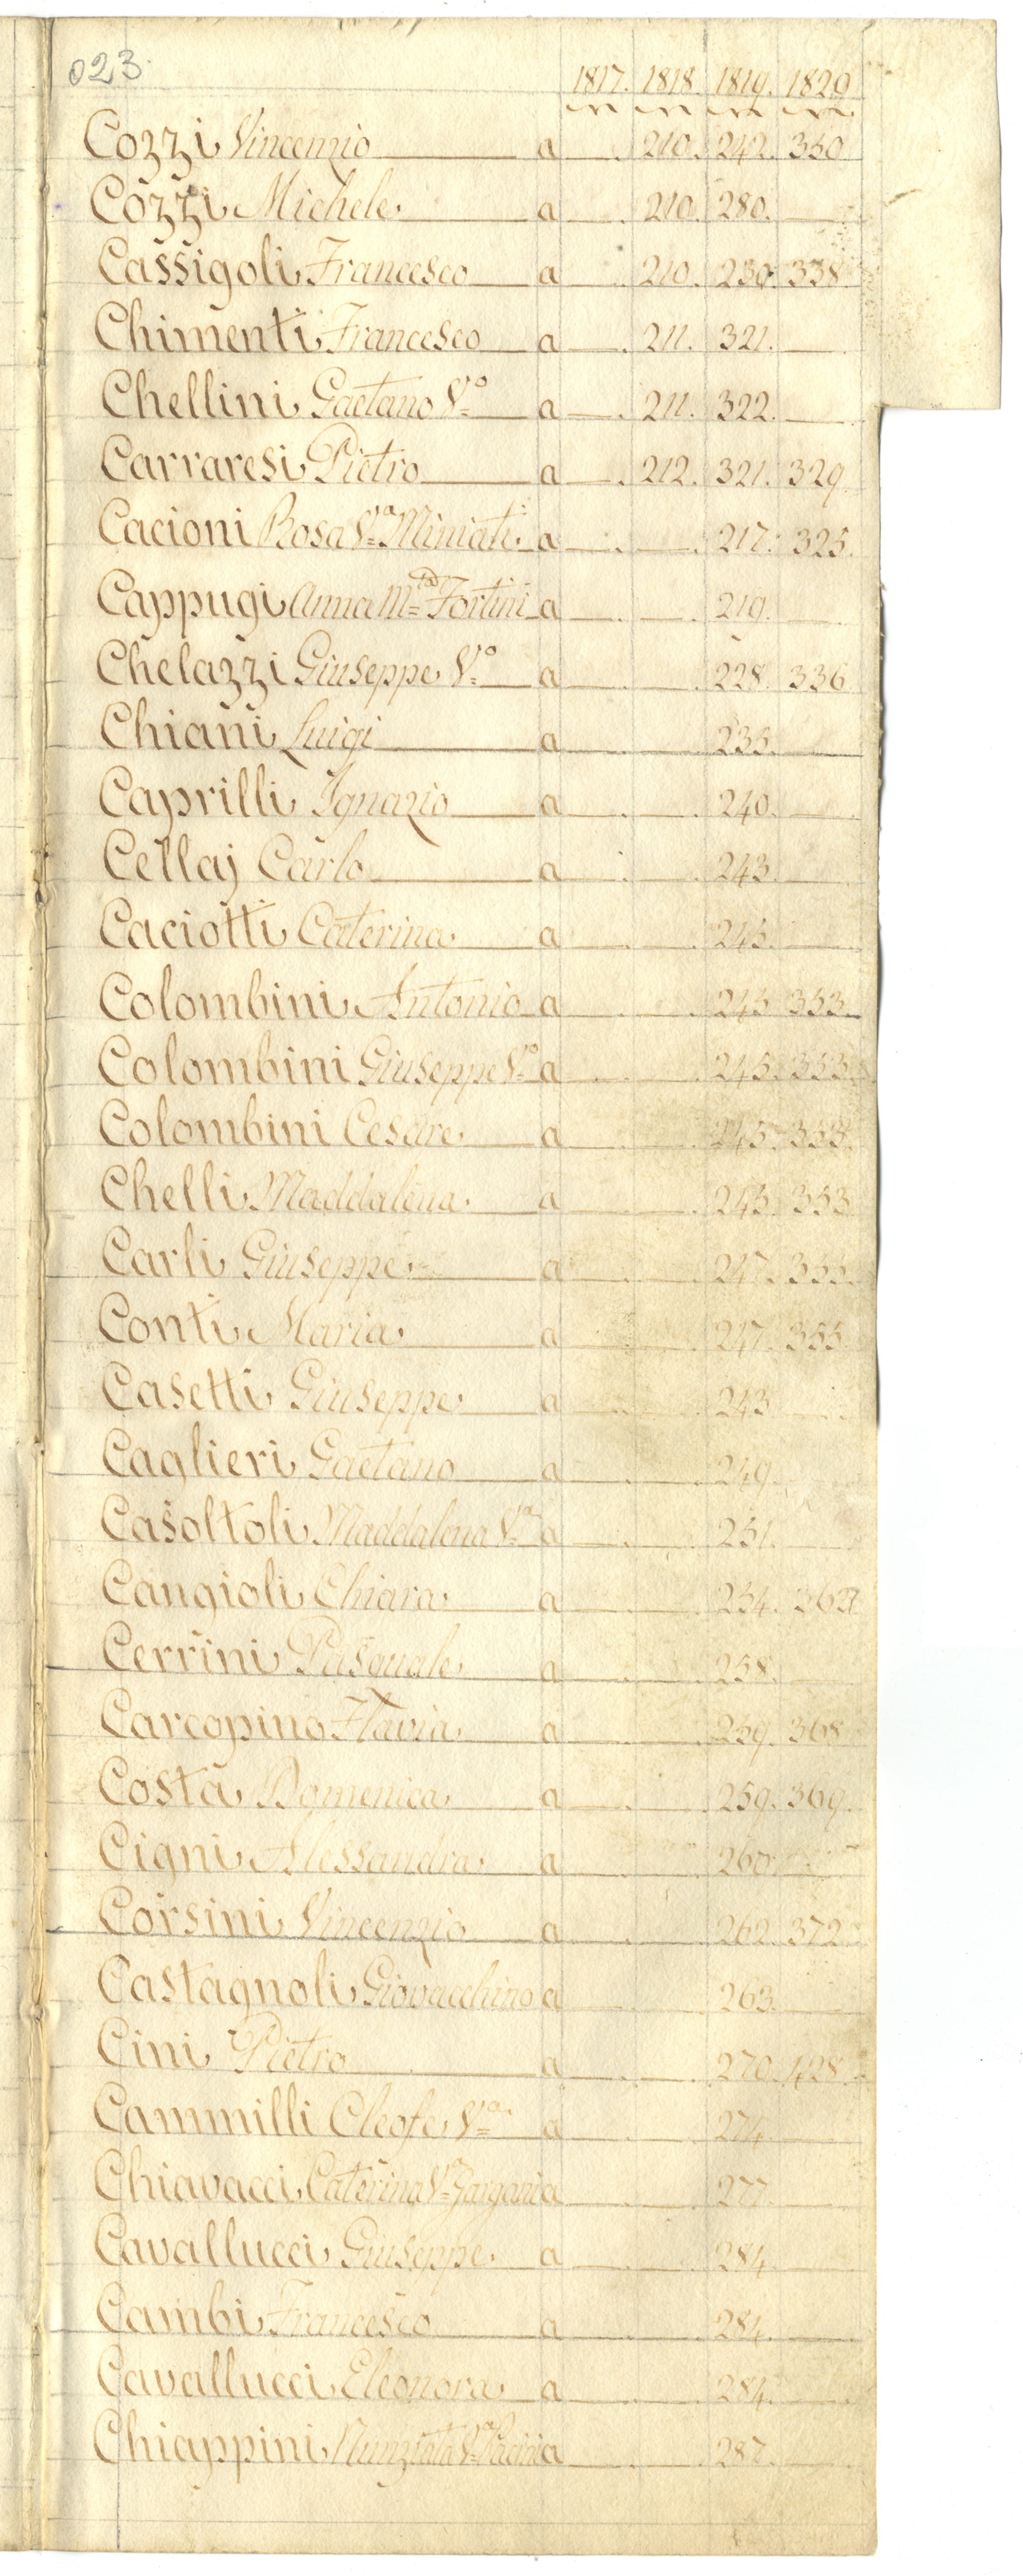 023.
1817. 1818. 1819. 1820
Cozzi Vincenzio a 210. 242. 350
Cozzi Michele a 210. 280.
Cassigoli Francesco a 210. 230. 338
Chimenti Francesco a 211. 321.
Chellini Gaetano V.º a 211. 322.
Carraresi Pietro a 212. 321. 329.
Cacioni Rosa V.ª Miniati a 217. 325.
Cappugi Anna M.ª Fortini a 219.
Chelazzi Giuseppe V.º a 228. 336
Chiani Luigi a 235.
Caprilli Ignazio a 240.
Cellaj Carlo a 243.
Caciotti Caterina a 245.
Colombini Antonio a 245. 353.
Colombini Giuseppe V.º a 245. 353.
Colombini Cesare a 245. 353.
Chelli Maddalena a 245. 353
Carli Giuseppe a 247. 355.
Conti Maria a 247. 355
Casetti Giuseppe a 243
Caglieri Gaetano a 249.
Casoltoli Maddalena V.ª a 251.
Cangioli Chiara a 254.
Cerrini Pasquale a 258.
Carcopino Flavia a 259. 368
Costa Domenica a 259. 369.
Cigni Alessandra a 260
Corsini Vincenzio a 262. 372
Castagnoli Giovacchino a 263.
Cini Pietro a 270. 428
Cammilli Cleofe V.ª a 274.
Chiavacci Caterina V.ª Gargani a 277.
Cavallucci Giuseppe a 284.
Cambi Francesco a 284.
Cavallucci Eleonora a 284.
Chiappini Nunziata V.ª Pacini a 287.